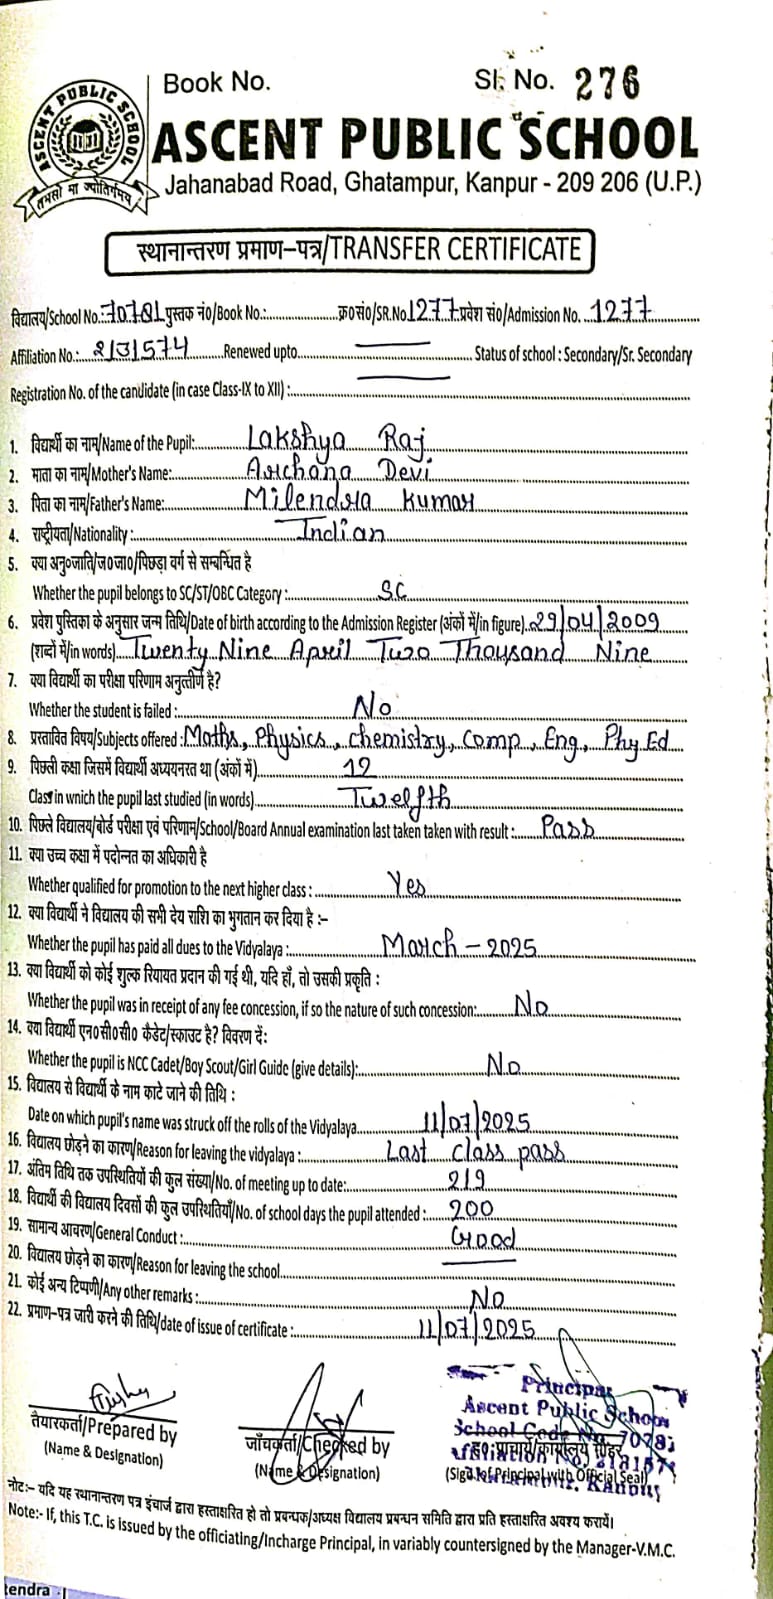 Book No.
Sl. No. 276
ASCENT PUBLIC SCHOOL
तमसो मा ज्योतिर्गमय
ASCENT PUBLIC SCHOOL
Jahanabad Road, Ghatampur, Kanpur - 209 206 (U.P.)
स्थानान्तरण प्रमाण-पत्र/TRANSFER CERTIFICATE
विद्यालय/School No.: 70781 पुस्तक नं०/Book No.:........ क्र०सं०/SR.No 1277 प्रवेश सं०/Admission No. 1277
Affiliation No.: 2131574 Renewed upto........ Status of school : Secondary/Sr. Secondary
Registration No. of the candidate (in case Class-IX to XII) :........
1. विद्यार्थी का नाम/Name of the Pupil: Lakshya Raj
2. माता का नाम/Mother's Name: Archana Devi
3. पिता का नाम/Father's Name: Milendra Kumar
4. राष्ट्रीयता/Nationality : Indian
5. क्या अनु०जाति/ज०जा०/पिछड़ा वर्ग से सम्बन्धित है
Whether the pupil belongs to SC/ST/OBC Category : SC
6. प्रवेश पुस्तिका के अनुसार जन्म तिथि/Date of birth according to the Admission Register (अंकों में/in figure). 29/04/2009
(शब्दों में/in words) Twenty Nine April Two Thousand Nine
7. क्या विद्यार्थी का परीक्षा परिणाम अनुत्तीर्ण है?
Whether the student is failed : No
8. प्रस्तावित विषय/Subjects offered : Maths, Physics, chemistry, Comp, Eng, Phy Ed
9. पिछली कक्षा जिसमें विद्यार्थी अध्ययनरत था (अंकों में) 12
Class in wnich the pupil last studied (in words) Twelfth
10. पिछले विद्यालय/बोर्ड परीक्षा एवं परिणाम/School/Board Annual examination last taken taken with result : Pass
11. क्या उच्च कक्षा में पदोन्नत का अधिकारी है
Whether qualified for promotion to the next higher class : Yes
12. क्या विद्यार्थी ने विद्यालय की सभी देय राशि का भुगतान कर दिया है :-
Whether the pupil has paid all dues to the Vidyalaya : March - 2025
13. क्या विद्यार्थी को कोई शुल्क रियायत प्रदान की गई थी, यदि हाँ, तो उसकी प्रकृति :
Whether the pupil was in receipt of any fee concession, if so the nature of such concession: No
14. क्या विद्यार्थी एन०सी०सी० कैडेट/स्काउट है? विवरण दें:
Whether the pupil is NCC Cadet/Boy Scout/Girl Guide (give details): No
15. विद्यालय से विद्यार्थी के नाम काटे जाने की तिथि :
Date on which pupil's name was struck off the rolls of the Vidyalaya 11/07/2025
16. विद्यालय छोड़ने का कारण/Reason for leaving the vidyalaya : Last class pass
17. अंतिम तिथि तक उपस्थितियों की कुल संख्या/No. of meeting up to date: 219
18. विद्यार्थी की विद्यालय दिवसों की कुल उपस्थितियाँ/No. of school days the pupil attended : 200
19. सामान्य आचरण/General Conduct : Good
20. विद्यालय छोड़ने का कारण/Reason for leaving the school........
21. कोई अन्य टिप्पणी/Any other remarks : No
22. प्रमाण-पत्र जारी करने की तिथि/date of issue of certificate : 11/07/2025
Principal
Ascent Public School
School Code No. 70781
Affiliation No. 2131574
Kanpur
तैयारकर्ता/Prepared by
(Name & Designation)
जाँचकर्ता/Checked by
(Name & Designation)
(Sign. of Principal with Official Seal)
नोट:- यदि यह स्थानान्तरण पत्र इंचार्ज द्वारा हस्ताक्षरित हो तो प्रबन्धक/अध्यक्ष विद्यालय प्रबन्धन समिति द्वारा प्रति हस्ताक्षरित अवश्य करायें।
Note:- If, this T.C. is issued by the officiating/Incharge Principal, in variably countersigned by the Manager-V.M.C.
tendra